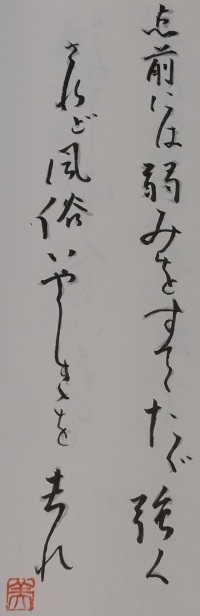 点前には弱みをすてたゞ強く
されど風俗いやしきを去れ